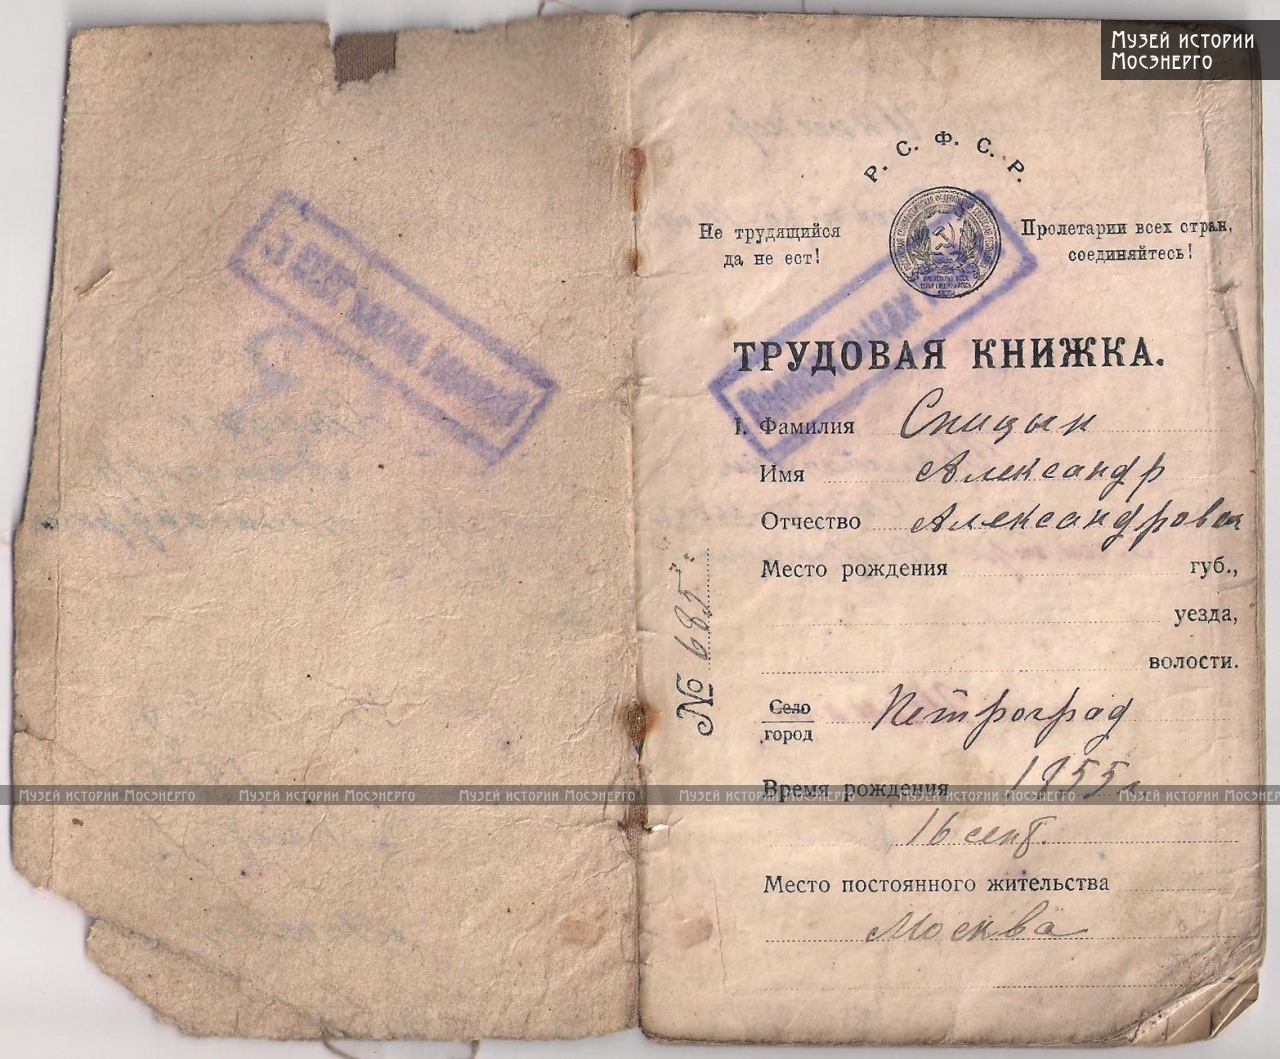 Музей истории
Мосэнерго
Р. С. Ф. С. Р.
Не трудящийся
да не ест!
Пролетарии всех стран,
соединяйтесь!
ТРУДОВАЯ КНИЖКА.
I. Фамилия Спицын
Имя Александр
Отчество Александрович
Место рождения губ.,
уезда,
волости.
Село
город Петроград
Время рождения 1855 г.
16 сент.
Место постоянного жительства
Москва
№ 685
Музей истории Мосэнерго Музей истории Мосэнерго Музей истории Мосэнерго Музей истории Мосэнерго Музей истории Мосэнерго Музей истории Мосэнерго